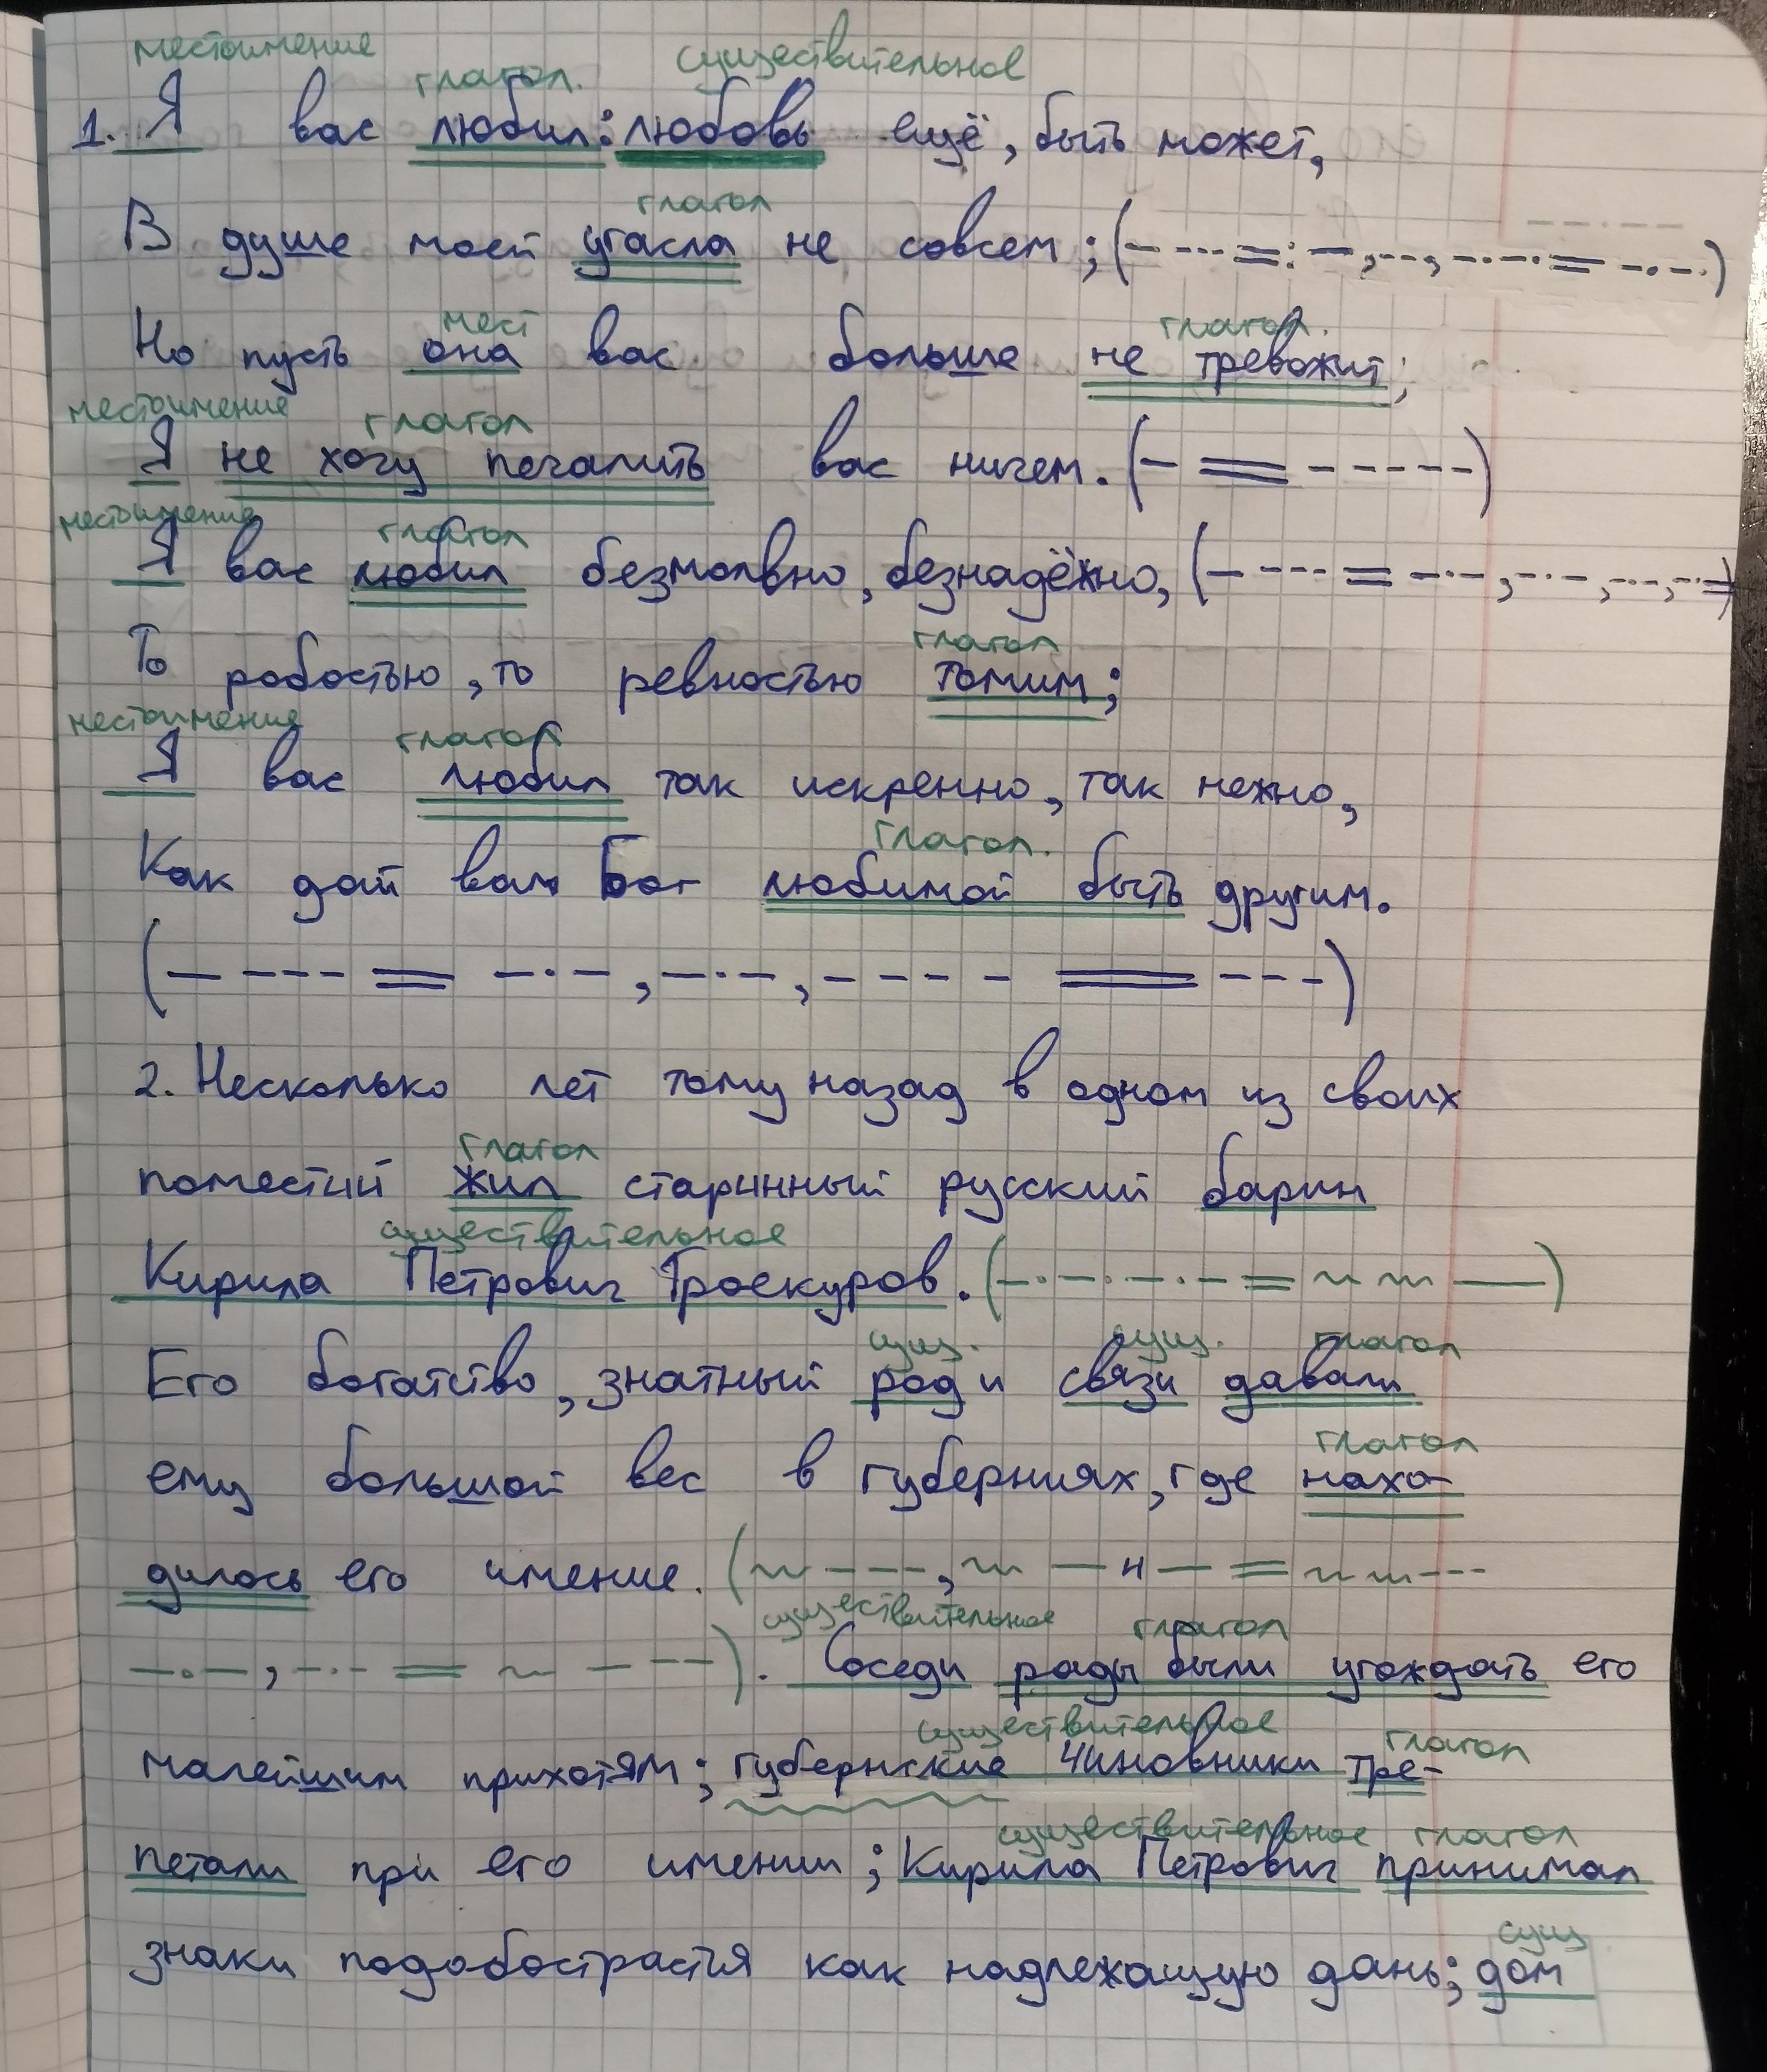 местоимение глагол. существительное
1. Я вас любил: любовь ещё, быть может,
глагол
В душе моей угасла не совсем;
мест глагол.
Но пусть она вас больше не тревожит;
местоимение глагол
Я не хочу печалить вас ничем.
местоимение глагол
Я вас любил безмолвно, безнадёжно,
глагол
То робостью, то ревностью томим;
местоимение глагол
Я вас любил так искренно, так нежно,
глагол.
Как дай вам Бог любимой быть другим.
2. Несколько лет тому назад в одном из своих
глагол
поместий жил старинный русский барин
существительное
Кирила Петрович Троекуров.
сущ. сущ. глагол
Его богатство, знатный род и связи давали
глагол
ему большой вес в губерниях, где нахо-
дилось его имение. ( и
существительное глагол
). Соседи рады были угождать его
существительное глагол
малейшим прихотям; губернские чиновники тре-
существительное глагол
петали при его имении; Кирила Петрович принимал
сущ
знаки подобострастья как надлежащую дань; дом